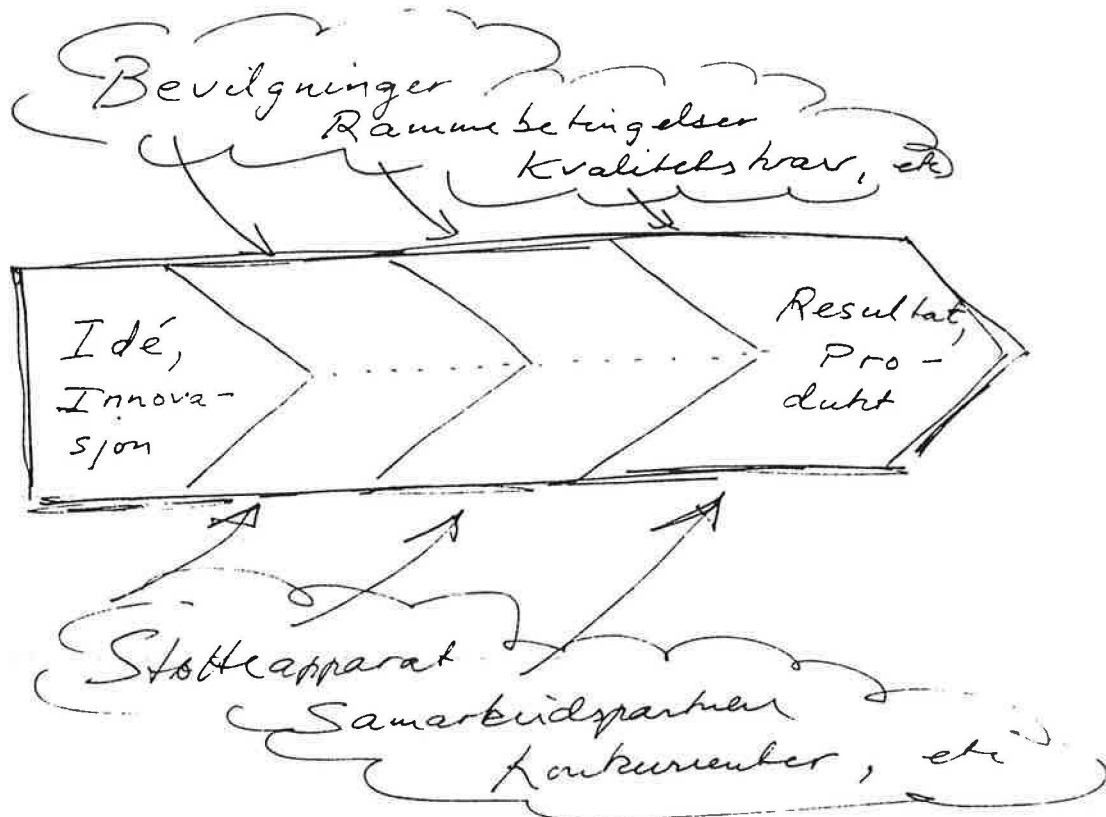 Bevilgninger
Rammebetingelser
Kvalitetskrav, etc
Idé,
Innova-
sjon
Resultat,
Pro-
dukt
Støtteapparat
Samarbeidspartnere
Konkurrenter, etc